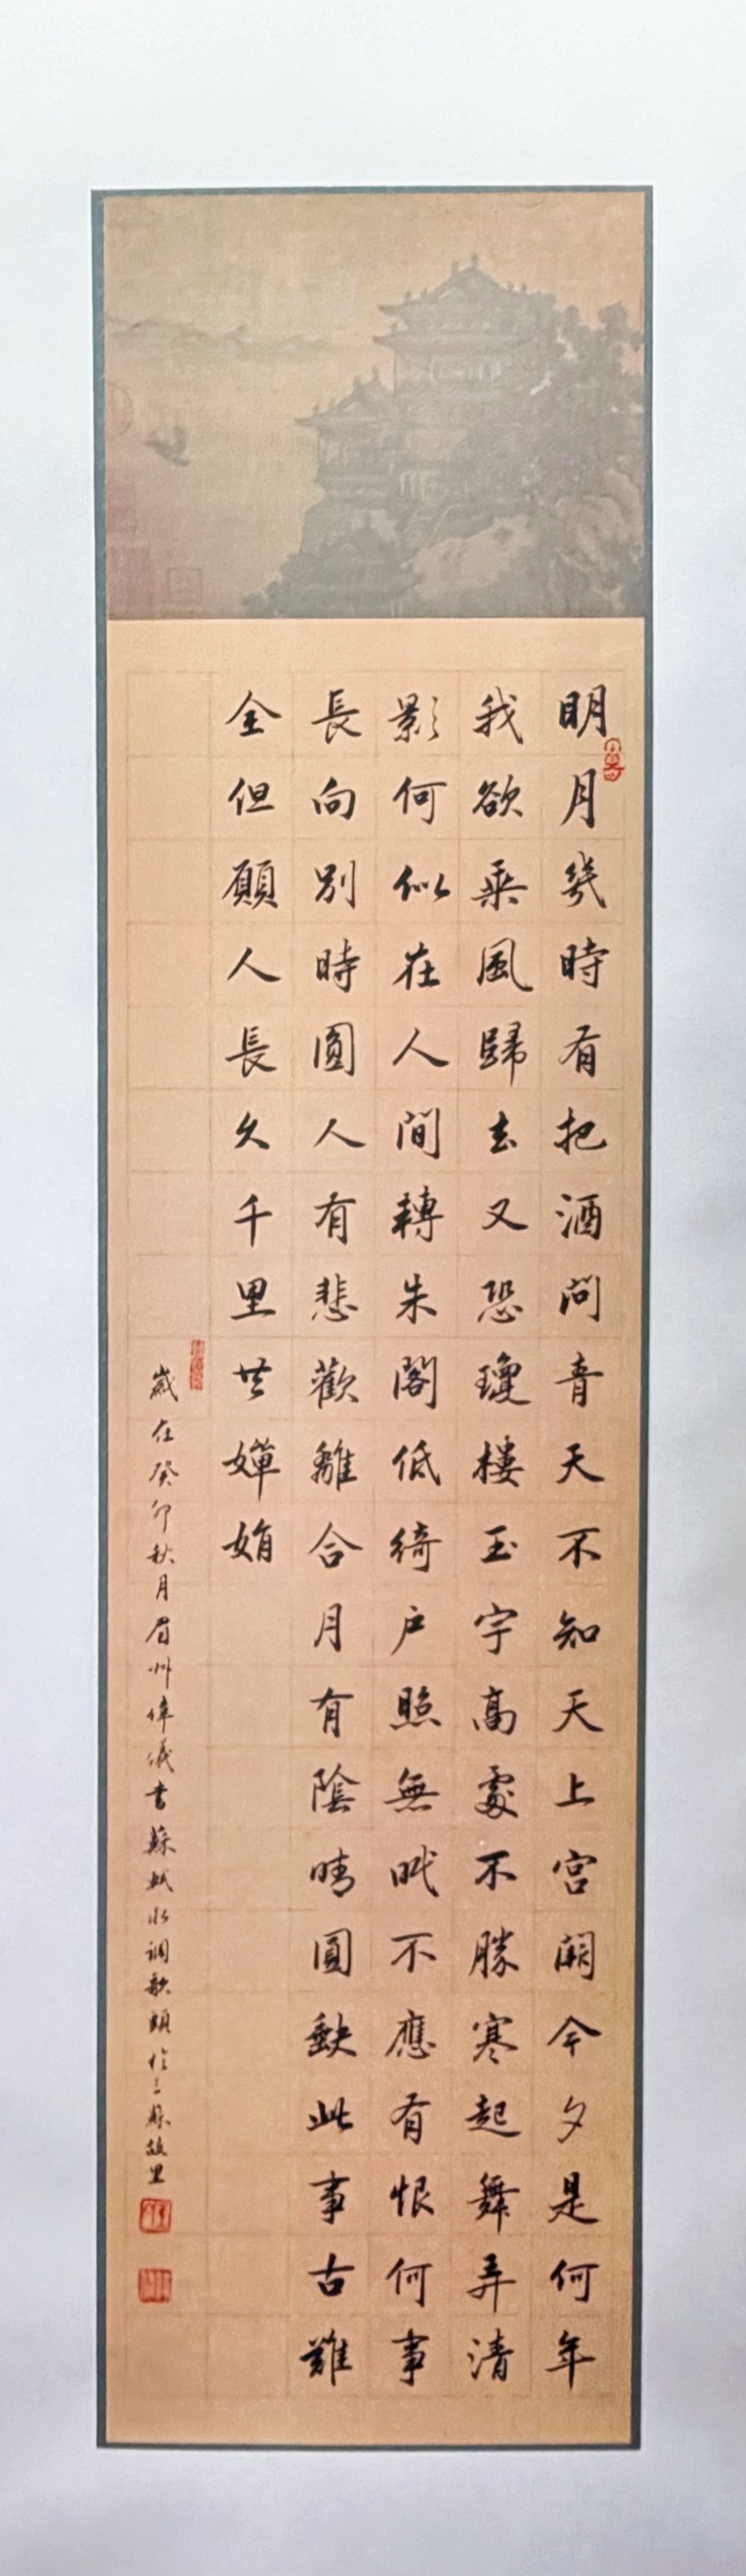 明月幾時有把酒問青天不知天上宮闕今夕是何年
我欲乘風歸去又恐瓊樓玉宇高處不勝寒起舞弄清
影何似在人間轉朱閣低綺戶照無眠不應有恨何事
長向別時圓人有悲歡離合月有陰晴圓缺此事古難
全但願人長久千里共嬋娟
歲在癸卯秋月眉州偉儀書蘇軾水調歌頭於三蘇故里